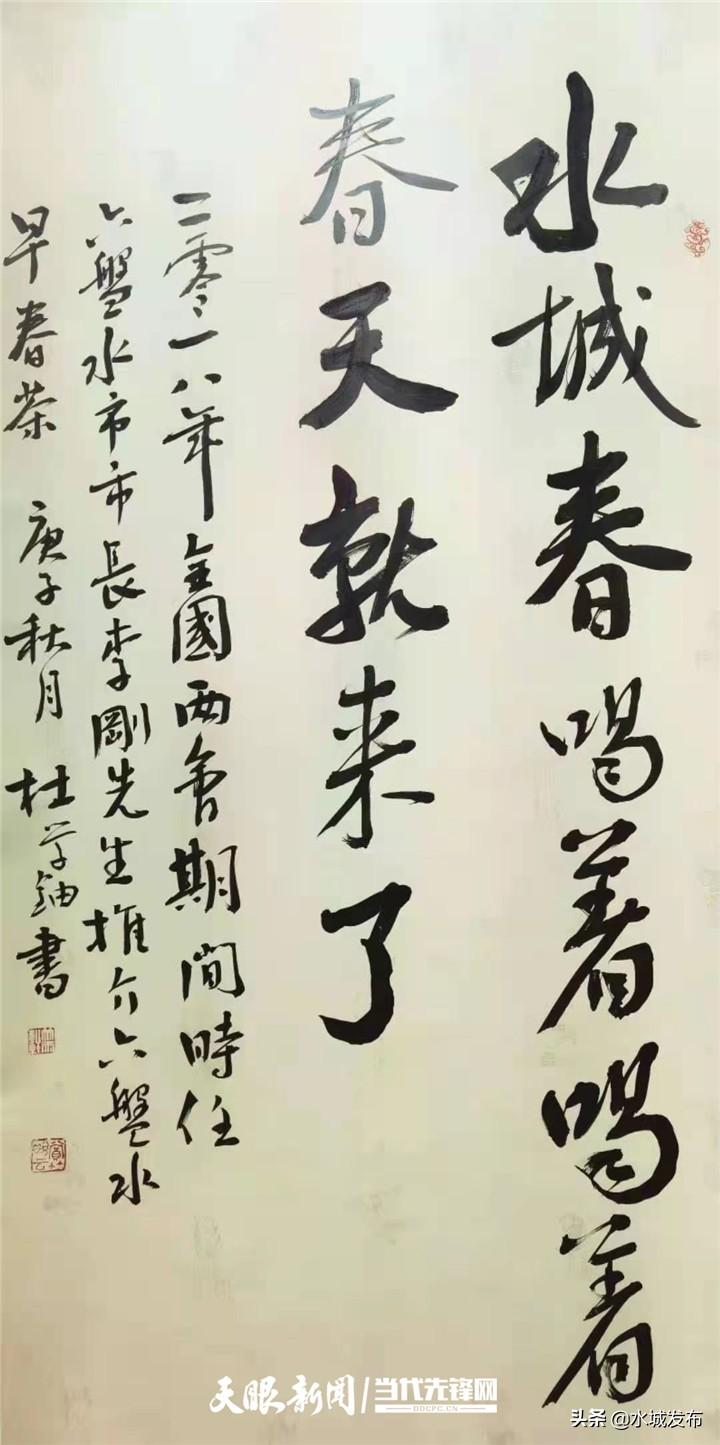 水城春喝着喝着
春天就来了
二零一八年全國两會期間時任
六盤水市市長李剛先生推介六盤水
早春茶 庚子秋月 杜学鈾書
天眼新闻/当代先锋网
DDCPC.CN
头条 @水城发布